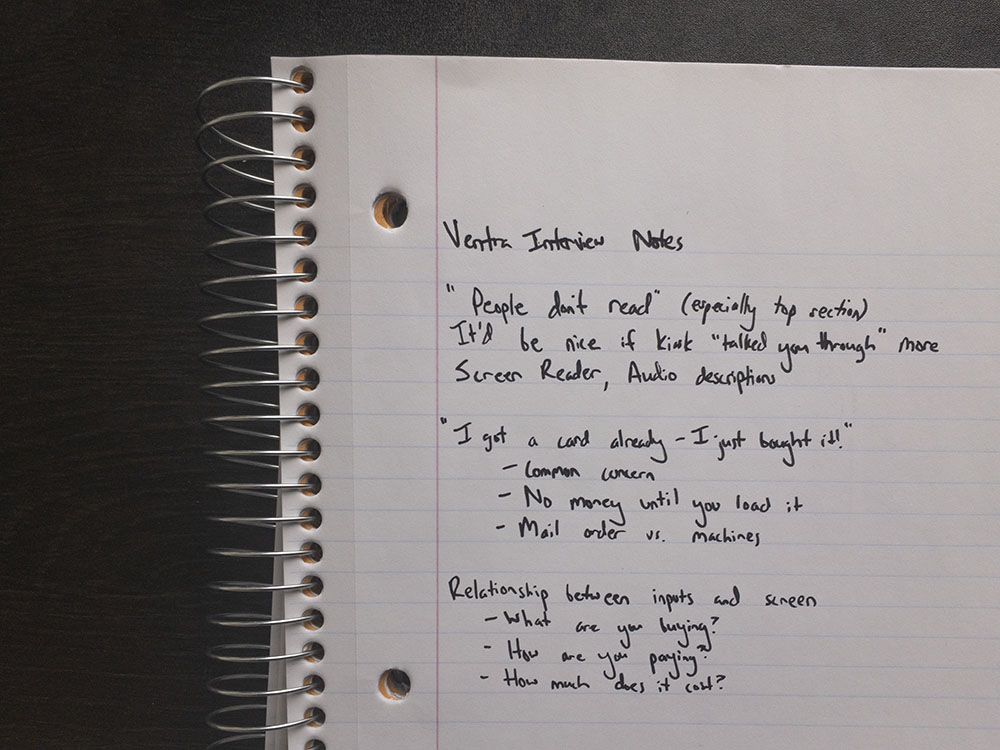 Ventra Interview Notes
"People don't read" (especially top section)
It'd be nice if kiosk "talked you through" more
Screen Reader, Audio descriptions
"I got a card already - I just bought it!"
- Common concern
- No money until you load it
- Mail order vs. machines
Relationship between inputs and screen
- What are you buying?
- How are you paying?
- How much does it cost?